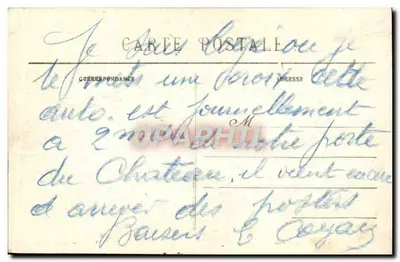 CARTE POSTALE
Je suis logé ou je
te mets une croix cette
CORRESPONDANCE
ADRESSE
auto est journellement
M
a 2 mètres de notre porte
du Chateau, il vient encore
d arriver des
Baisers